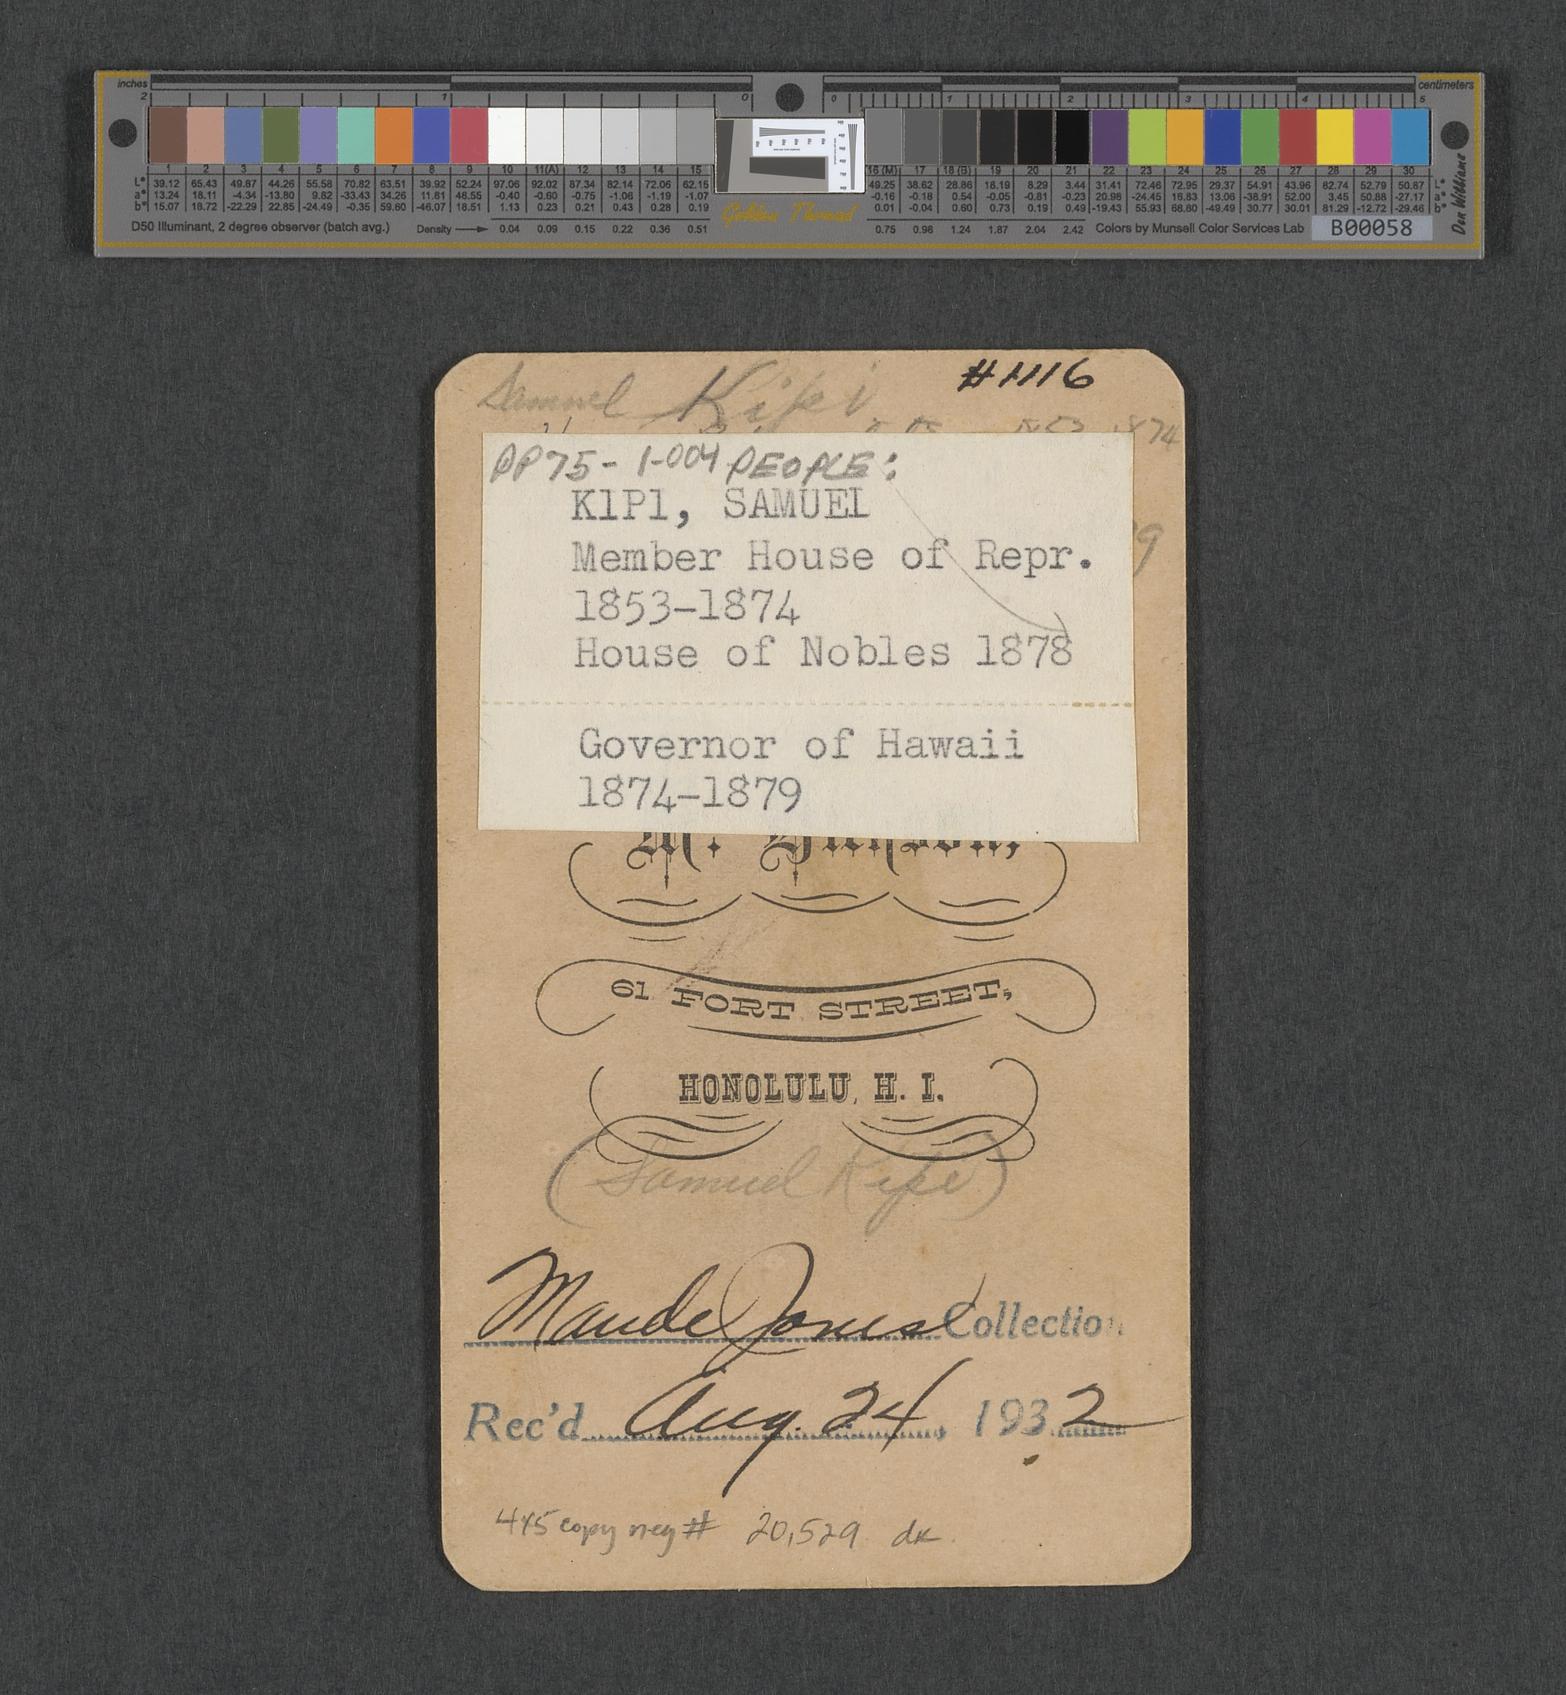 inches
centimeters
2 1 0 0 1 2 3 4 5
1 2 3 4 5 6 7 8 9 10 11(A) 12 13 14 15 16 (M) 17 18 (B) 19 20 21 22 23 24 25 26 27 28 29 30
L* 39.12 65.43 49.87 44.26 55.58 70.82 63.51 39.92 52.24 97.06 92.02 87.34 82.14 72.06 62.15 49.25 38.62 28.86 16.19 8.29 3.44 31.41 72.46 72.95 29.37 54.91 43.96 82.74 52.79 50.87 L*
a* 13.24 18.11 -4.34 -13.80 9.82 -33.43 34.26 11.81 48.55 -0.40 -0.60 -0.75 -1.06 -1.19 -1.07 -0.16 -0.18 0.54 -0.05 -0.81 -0.23 20.98 -24.45 16.83 13.06 -38.91 52.00 3.45 50.88 -27.17 a*
b* 15.07 18.72 -22.29 22.85 -24.49 -0.35 59.60 -46.07 18.51 1.13 0.23 0.21 0.43 0.28 0.19 0.01 -0.04 0.60 0.73 0.19 0.49 -19.43 55.93 68.80 -49.49 30.77 30.01 81.29 -12.72 -29.46 b*
D50 Illuminant, 2 degree observer (batch avg.) Density 0.04 0.09 0.15 0.22 0.36 0.51 Golden Thread 0.75 0.98 1.24 1.87 2.04 2.42 Colors by Munsell Color Services Lab B00058
Don Williams
Samuel Kipi #1116
1874
PP75-1-004 PEOPLE:
K1P1, SAMUEL
9
Member House of Repr.
1853-1874
House of Nobles 1878
Governor of Hawaii
1874-1879
M. Dickson,
61 FORT STREET,
HONOLULU, H. I.
(Samuel Kipi)
Maude Jones Collection
Rec'd Aug. 24, 1932
4x5 copy neg # 20,529 dk